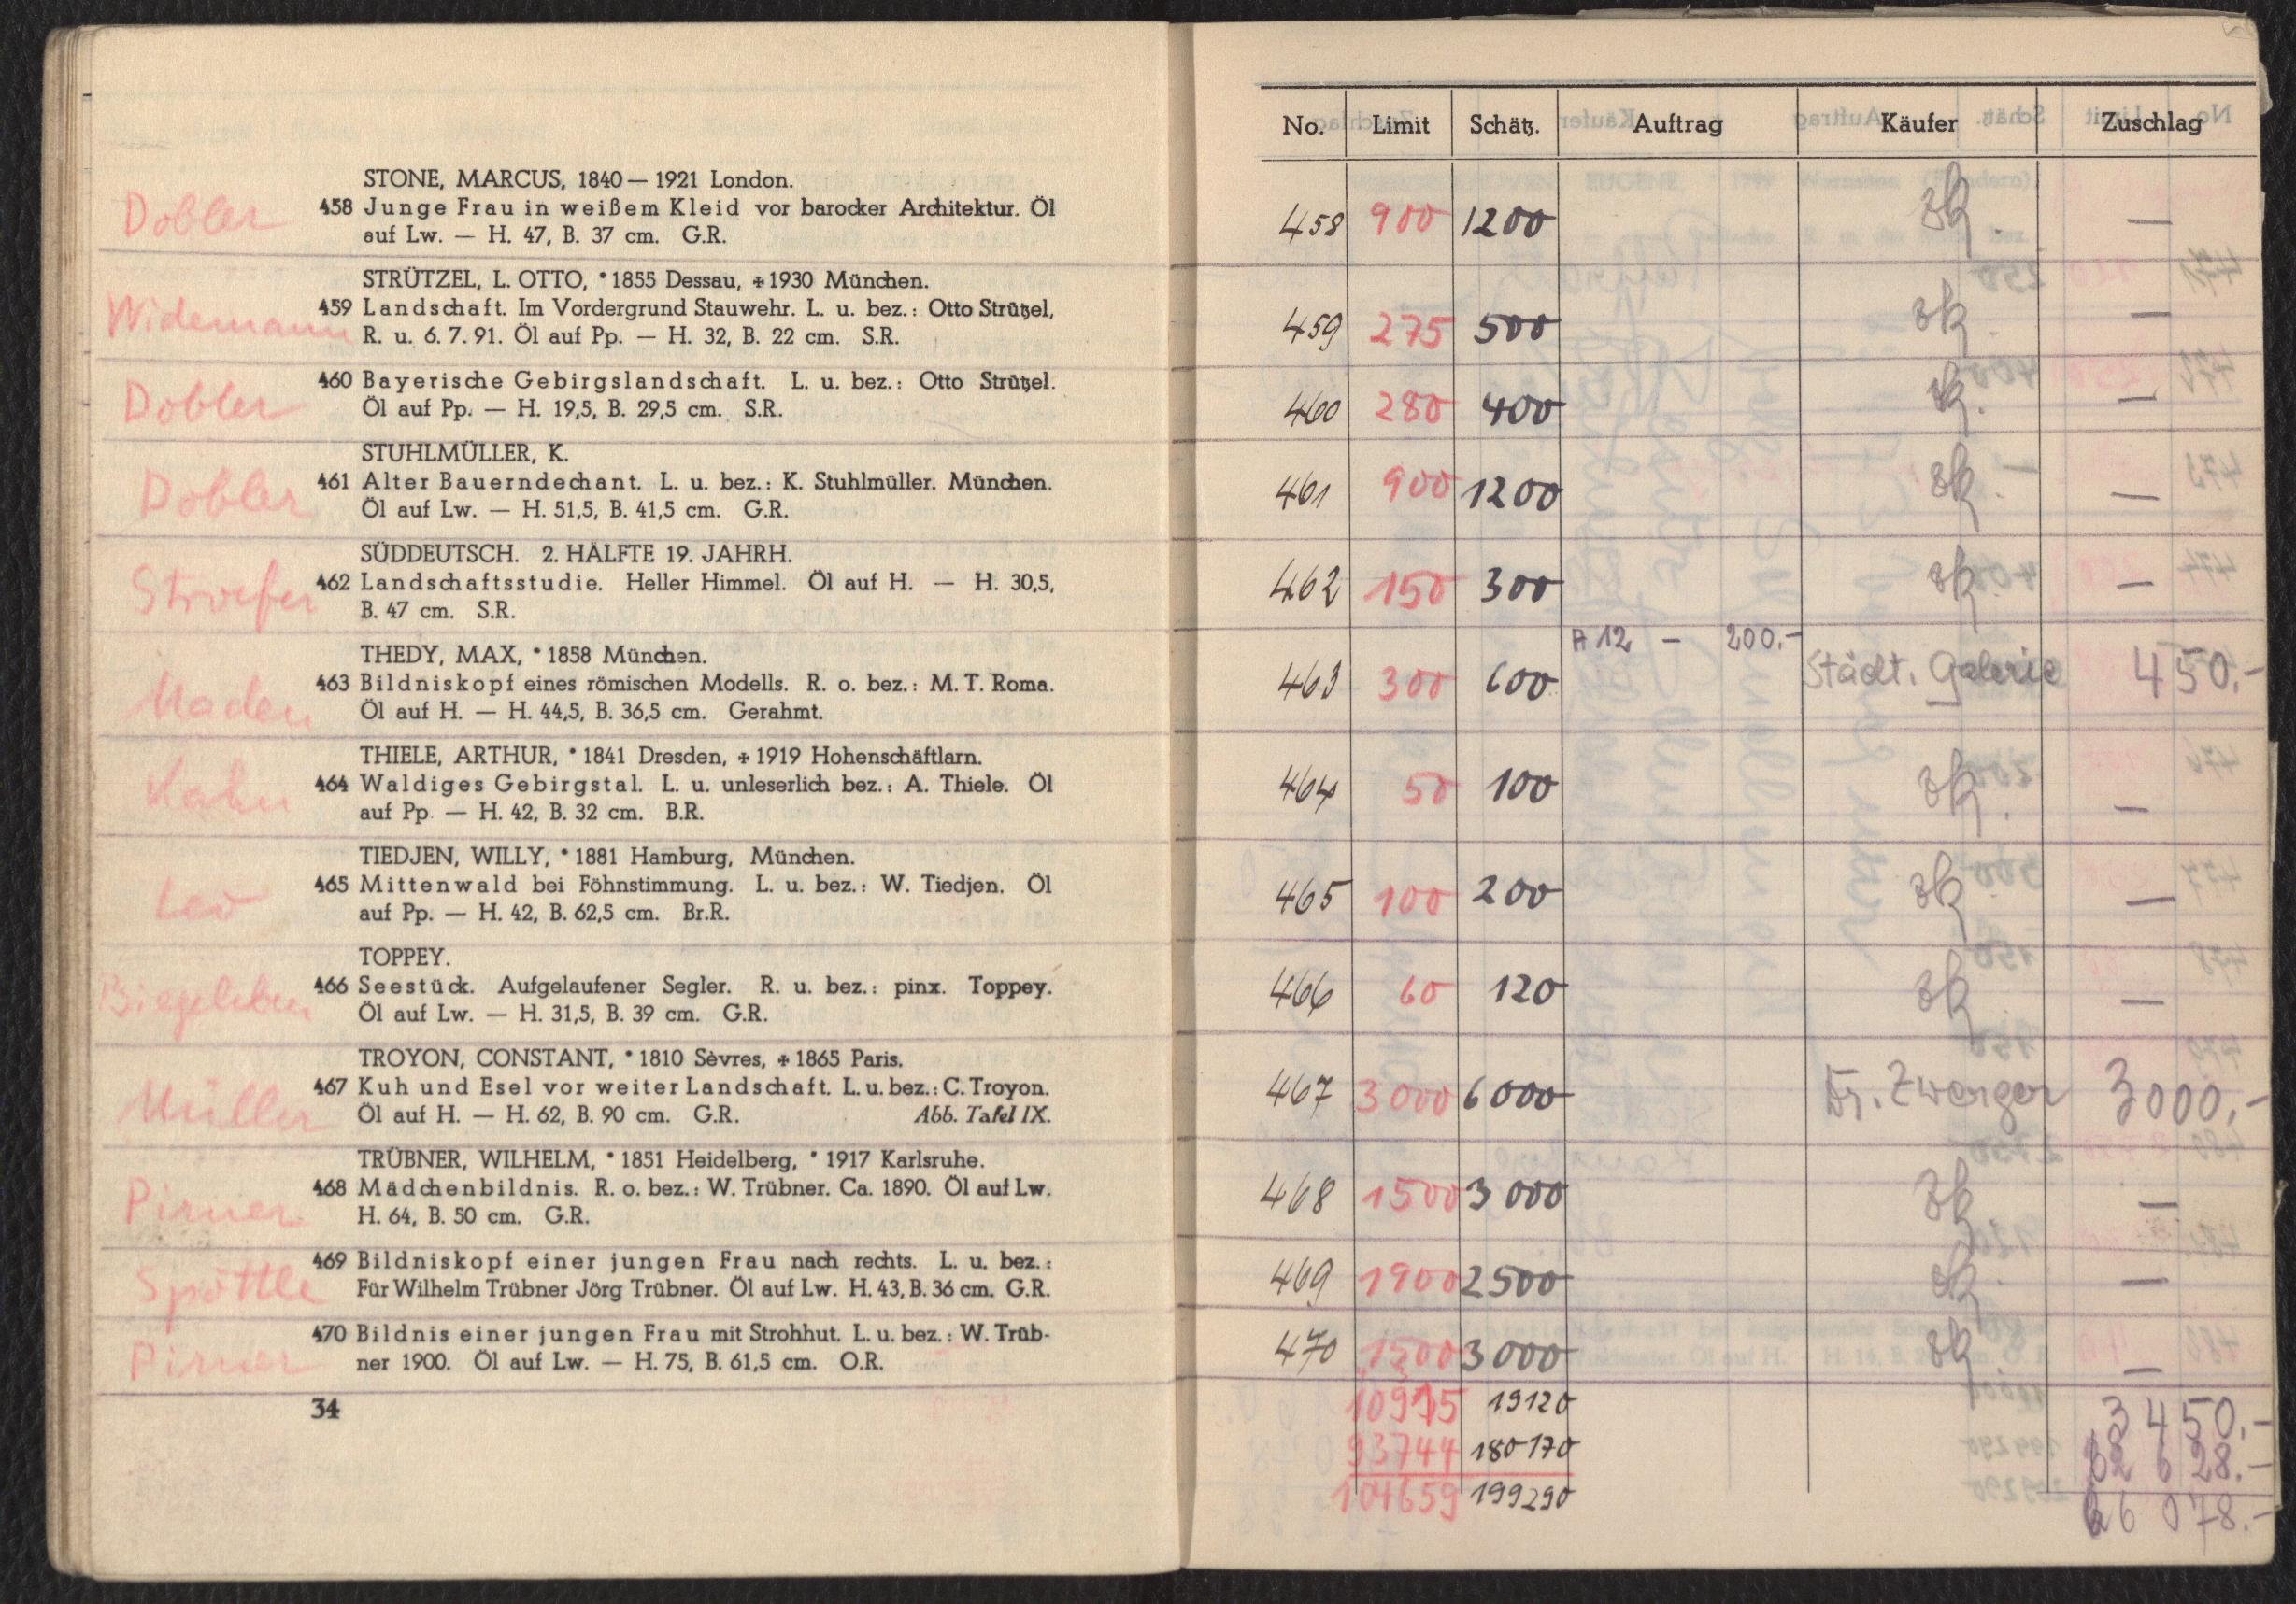 STONE, MARCUS, 1840 — 1921 London.
Dobler 458 Junge Frau in weißem Kleid vor barocker Architektur. Öl
auf Lw. — H. 47, B. 37 cm. G.R.
STRÜTZEL, L. OTTO, * 1855 Dessau, + 1930 München.
Widemann 459 Landschaft. Im Vordergrund Stauwehr. L. u. bez.: Otto Strützel,
R. u. 6. 7. 91. Öl auf Pp. — H. 32, B. 22 cm. S.R.
Dobler 460 Bayerische Gebirgslandschaft. L. u. bez.: Otto Strützel.
Öl auf Pp. — H. 19,5, B. 29,5 cm. S.R.
STUHLMÜLLER, K.
Dobler 461 Alter Bauerndechant. L. u. bez.: K. Stuhlmüller. München.
Öl auf Lw. — H. 51,5, B. 41,5 cm. G.R.
SÜDDEUTSCH. 2. HÄLFTE 19. JAHRH.
Stroefer 462 Landschaftsstudie. Heller Himmel. Öl auf H. — H. 30,5,
B. 47 cm. S.R.
THEDY, MAX, * 1858 München.
463 Bildniskopf eines römischen Modells. R. o. bez.: M. T. Roma.
Öl auf H. — H. 44,5, B. 36,5 cm. Gerahmt.
THIELE, ARTHUR, * 1841 Dresden, + 1919 Hohenschäftlarn.
Kahn 464 Waldiges Gebirgstal. L. u. unleserlich bez.: A. Thiele. Öl
auf Pp. — H. 42, B. 32 cm. B.R.
TIEDJEN, WILLY, * 1881 Hamburg, München.
465 Mittenwald bei Föhnstimmung. L. u. bez.: W. Tiedjen. Öl
auf Pp. — H. 42, B. 62,5 cm. Br.R.
TOPPEY.
Biegeleben 466 Seestück. Aufgelaufener Segler. R. u. bez.: pinx. Toppey.
Öl auf Lw. — H. 31,5, B. 39 cm. G.R.
TROYON, CONSTANT, * 1810 Sèvres, + 1865 Paris.
Müller 467 Kuh und Esel vor weiter Landschaft. L. u. bez.: C. Troyon.
Öl auf H. — H. 62, B. 90 cm. G.R. Abb. Tafel IX.
TRÜBNER, WILHELM, * 1851 Heidelberg, * 1917 Karlsruhe.
Pirner 468 Mädchenbildnis. R. o. bez.: W. Trübner. Ca. 1890. Öl auf Lw.
H. 64, B. 50 cm. G.R.
Spöttle 469 Bildniskopf einer jungen Frau nach rechts. L. u. bez.:
Für Wilhelm Trübner Jörg Trübner. Öl auf Lw. H. 43, B. 36 cm. G.R.
Pirner 470 Bildnis einer jungen Frau mit Strohhut. L. u. bez.: W. Trüb-
ner 1900. Öl auf Lw. — H. 75, B. 61,5 cm. O.R.
34
No. Limit Schätz. Auftrag Käufer Zuschlag
458 900 1200 zk. —
459 275 500 zk. —
460 280 400 zk. —
461 900 1200 zk. —
462 150 300 zk. —
A 12 — 200.-
463 300 600 Städt. Galerie 450.-
464 50 100 zk. —
465 100 200 zk. —
466 60 120 zk. —
467 3000 6000 Dr. Zwerger 3000.-
468 1500 3000 zk. —
469 1900 2500 zk. —
470 1500 3000 zk. —
10915 19120 3450.-
93744 180170 62628.-
104659 199290 66078.-